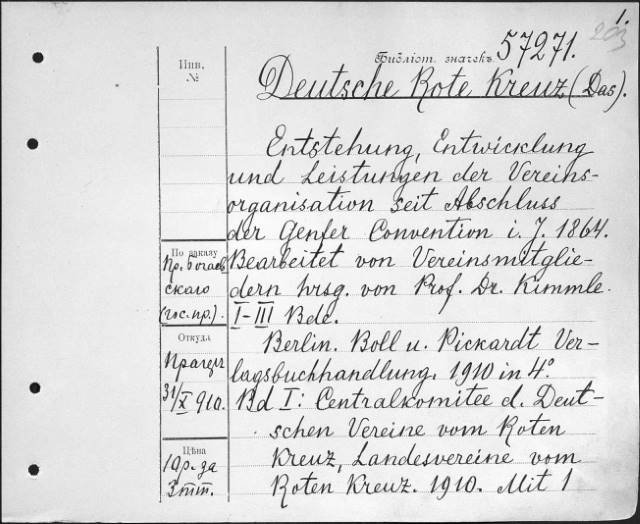 1.
203
Инв.
№
Библіот. значекъ 57271.
Deutsche Rote Kreuz (Das).
Entstehung, Entwicklung
und Leistungen der Vereins-
organisation seit Abschluss
der Genfer Convention i. J. 1864.
Bearbeitet von Vereinsmitglie-
dern hrsg. von Prof. Dr. Kimmle.
I–III Bde.
Berlin. Boll u. Pickardt Ver-
lagsbuchhandlung. 1910 in 4°.
Bd I: Centralkomitee d. Deut-
schen Vereine vom Roten
Kreuz, Landesvereine vom
Roten Kreuz. 1910. Mit 1
По заказу
Пр. Богаев
скаго
(гос. пр.).
Откуда
31/X 910.
Цѣна
за
3 тт.